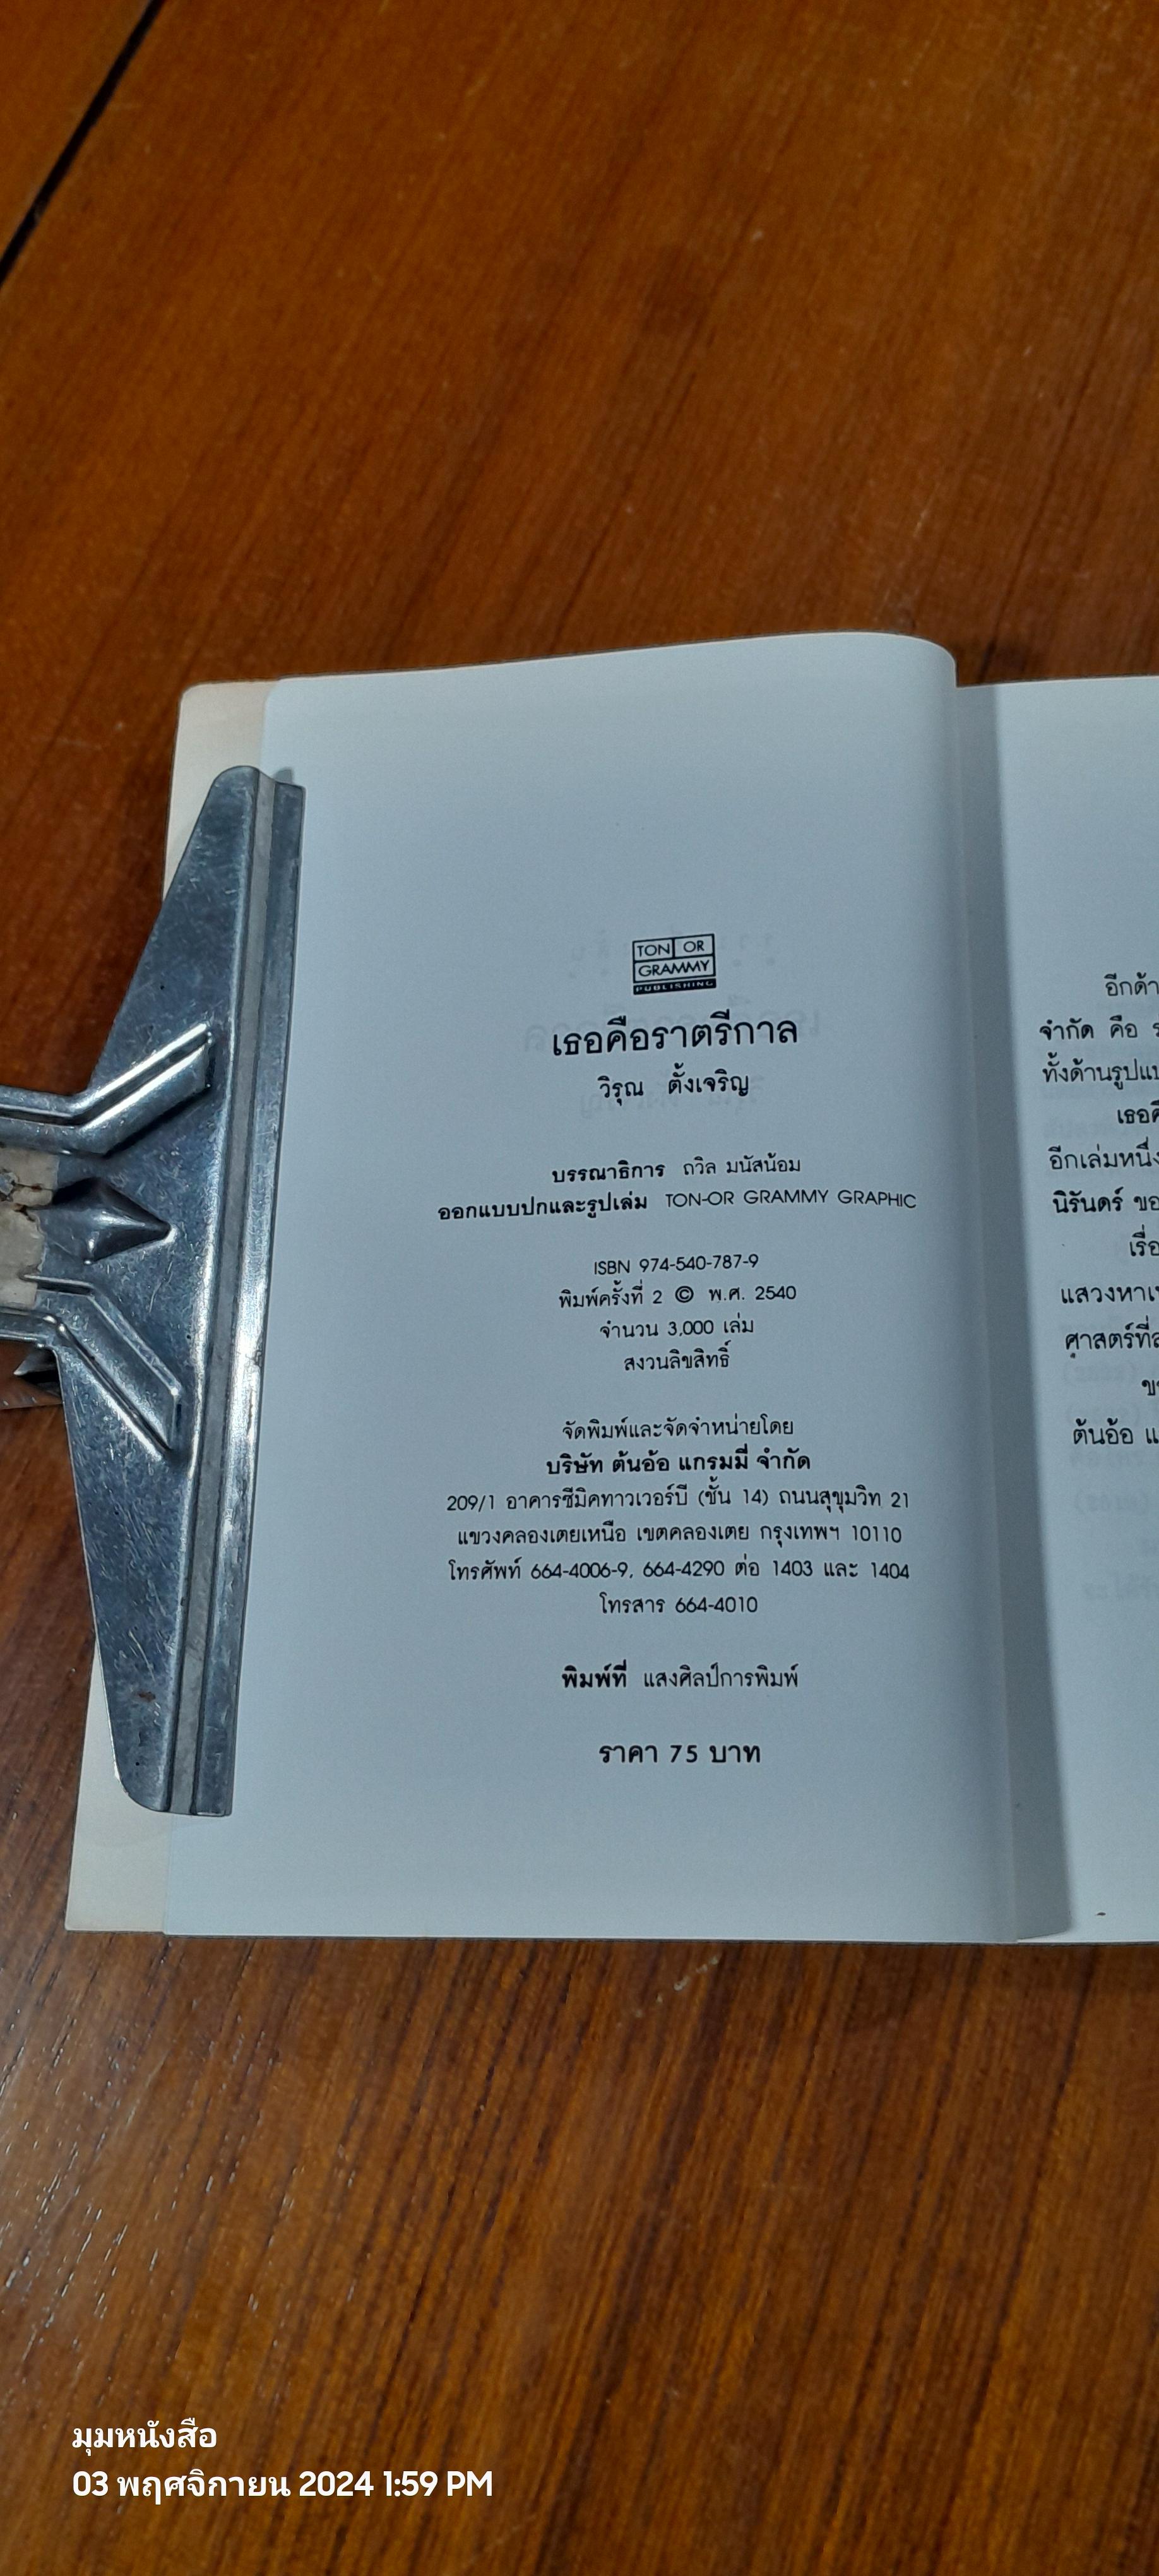 TON OR
GRAMMY
PUBLISHING
เธอคือราตรีกาล
วิรุณ ตั้งเจริญ
บรรณาธิการ ถวิล มนัสน้อม
ออกแบบปกและรูปเล่ม TON-OR GRAMMY GRAPHIC
ISBN 974-540-787-9
พิมพ์ครั้งที่ 2 © พ.ศ. 2540
จำนวน 3,000 เล่ม
สงวนลิขสิทธิ์
จัดพิมพ์และจัดจำหน่ายโดย
บริษัท ต้นอ้อ แกรมมี่ จำกัด
209/1 อาคารซีมิคทาวเวอร์บี (ชั้น 14) ถนนสุขุมวิท 21
แขวงคลองเตยเหนือ เขตคลองเตย กรุงเทพฯ 10110
โทรศัพท์ 664-4006-9, 664-4290 ต่อ 1403 และ 1404
โทรสาร 664-4010
พิมพ์ที่ แสงศิลป์การพิมพ์
ราคา 75 บาท
อีกด้า
จำกัด คือ
ทั้งด้านรูปแบ
เธอคื
อีกเล่มหนึ่ง
นิรันดร์ ขอ
เรื่อ
แสวงหาเ
ศาสตร์ที่
ข
ต้นอ้อ แ
มุมหนังสือ
03 พฤศจิกายน 2024 1:59 PM